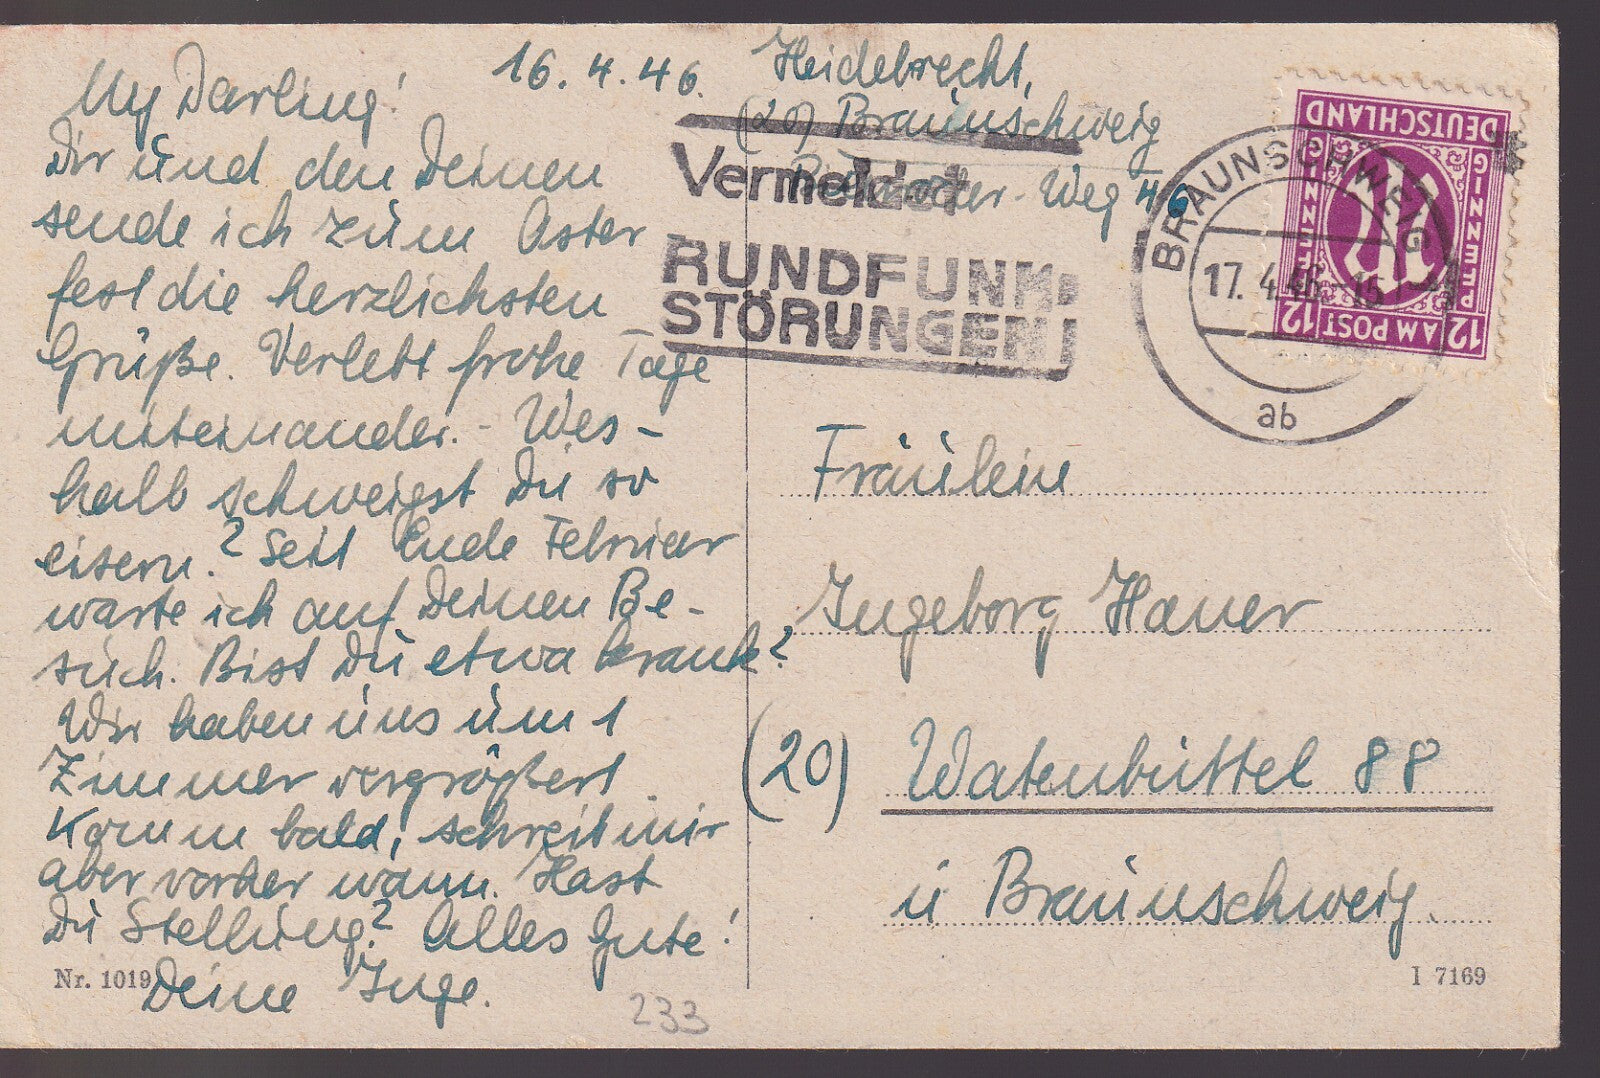 My Darling!
Dir und den Deinen
sende ich zum Oster
fest die herzlichsten
Grüße. Verlebt frohe Tage
miteinander. - Wes-
halb schweigst Du so
eisern? Seit Ende Februar
warte ich auf Deinen Be-
such. Bist Du etwa krank?
Wir haben uns um 1
Zimmer vergrößert.
Komm bald, schreib mir
aber vorher wann. Hast
Du Stellung? Alles Gute!
Deine Inge.
Nr. 1019
233
16.4.46.
Heidebrecht,
(20) Braunschweig
Weg 46
Vermeidet
RUNDFUNK-
STÖRUNGEN!
BRAUNSCHWEIG
17.4.46-15
ab
DEUTSCHLAND
PFENNIG
PFENNIG
12 AM POST 12
M
Fräulein
Ingeborg Hauer
(20) Watenbüttel 88
ü Braunschweig.
I 7169